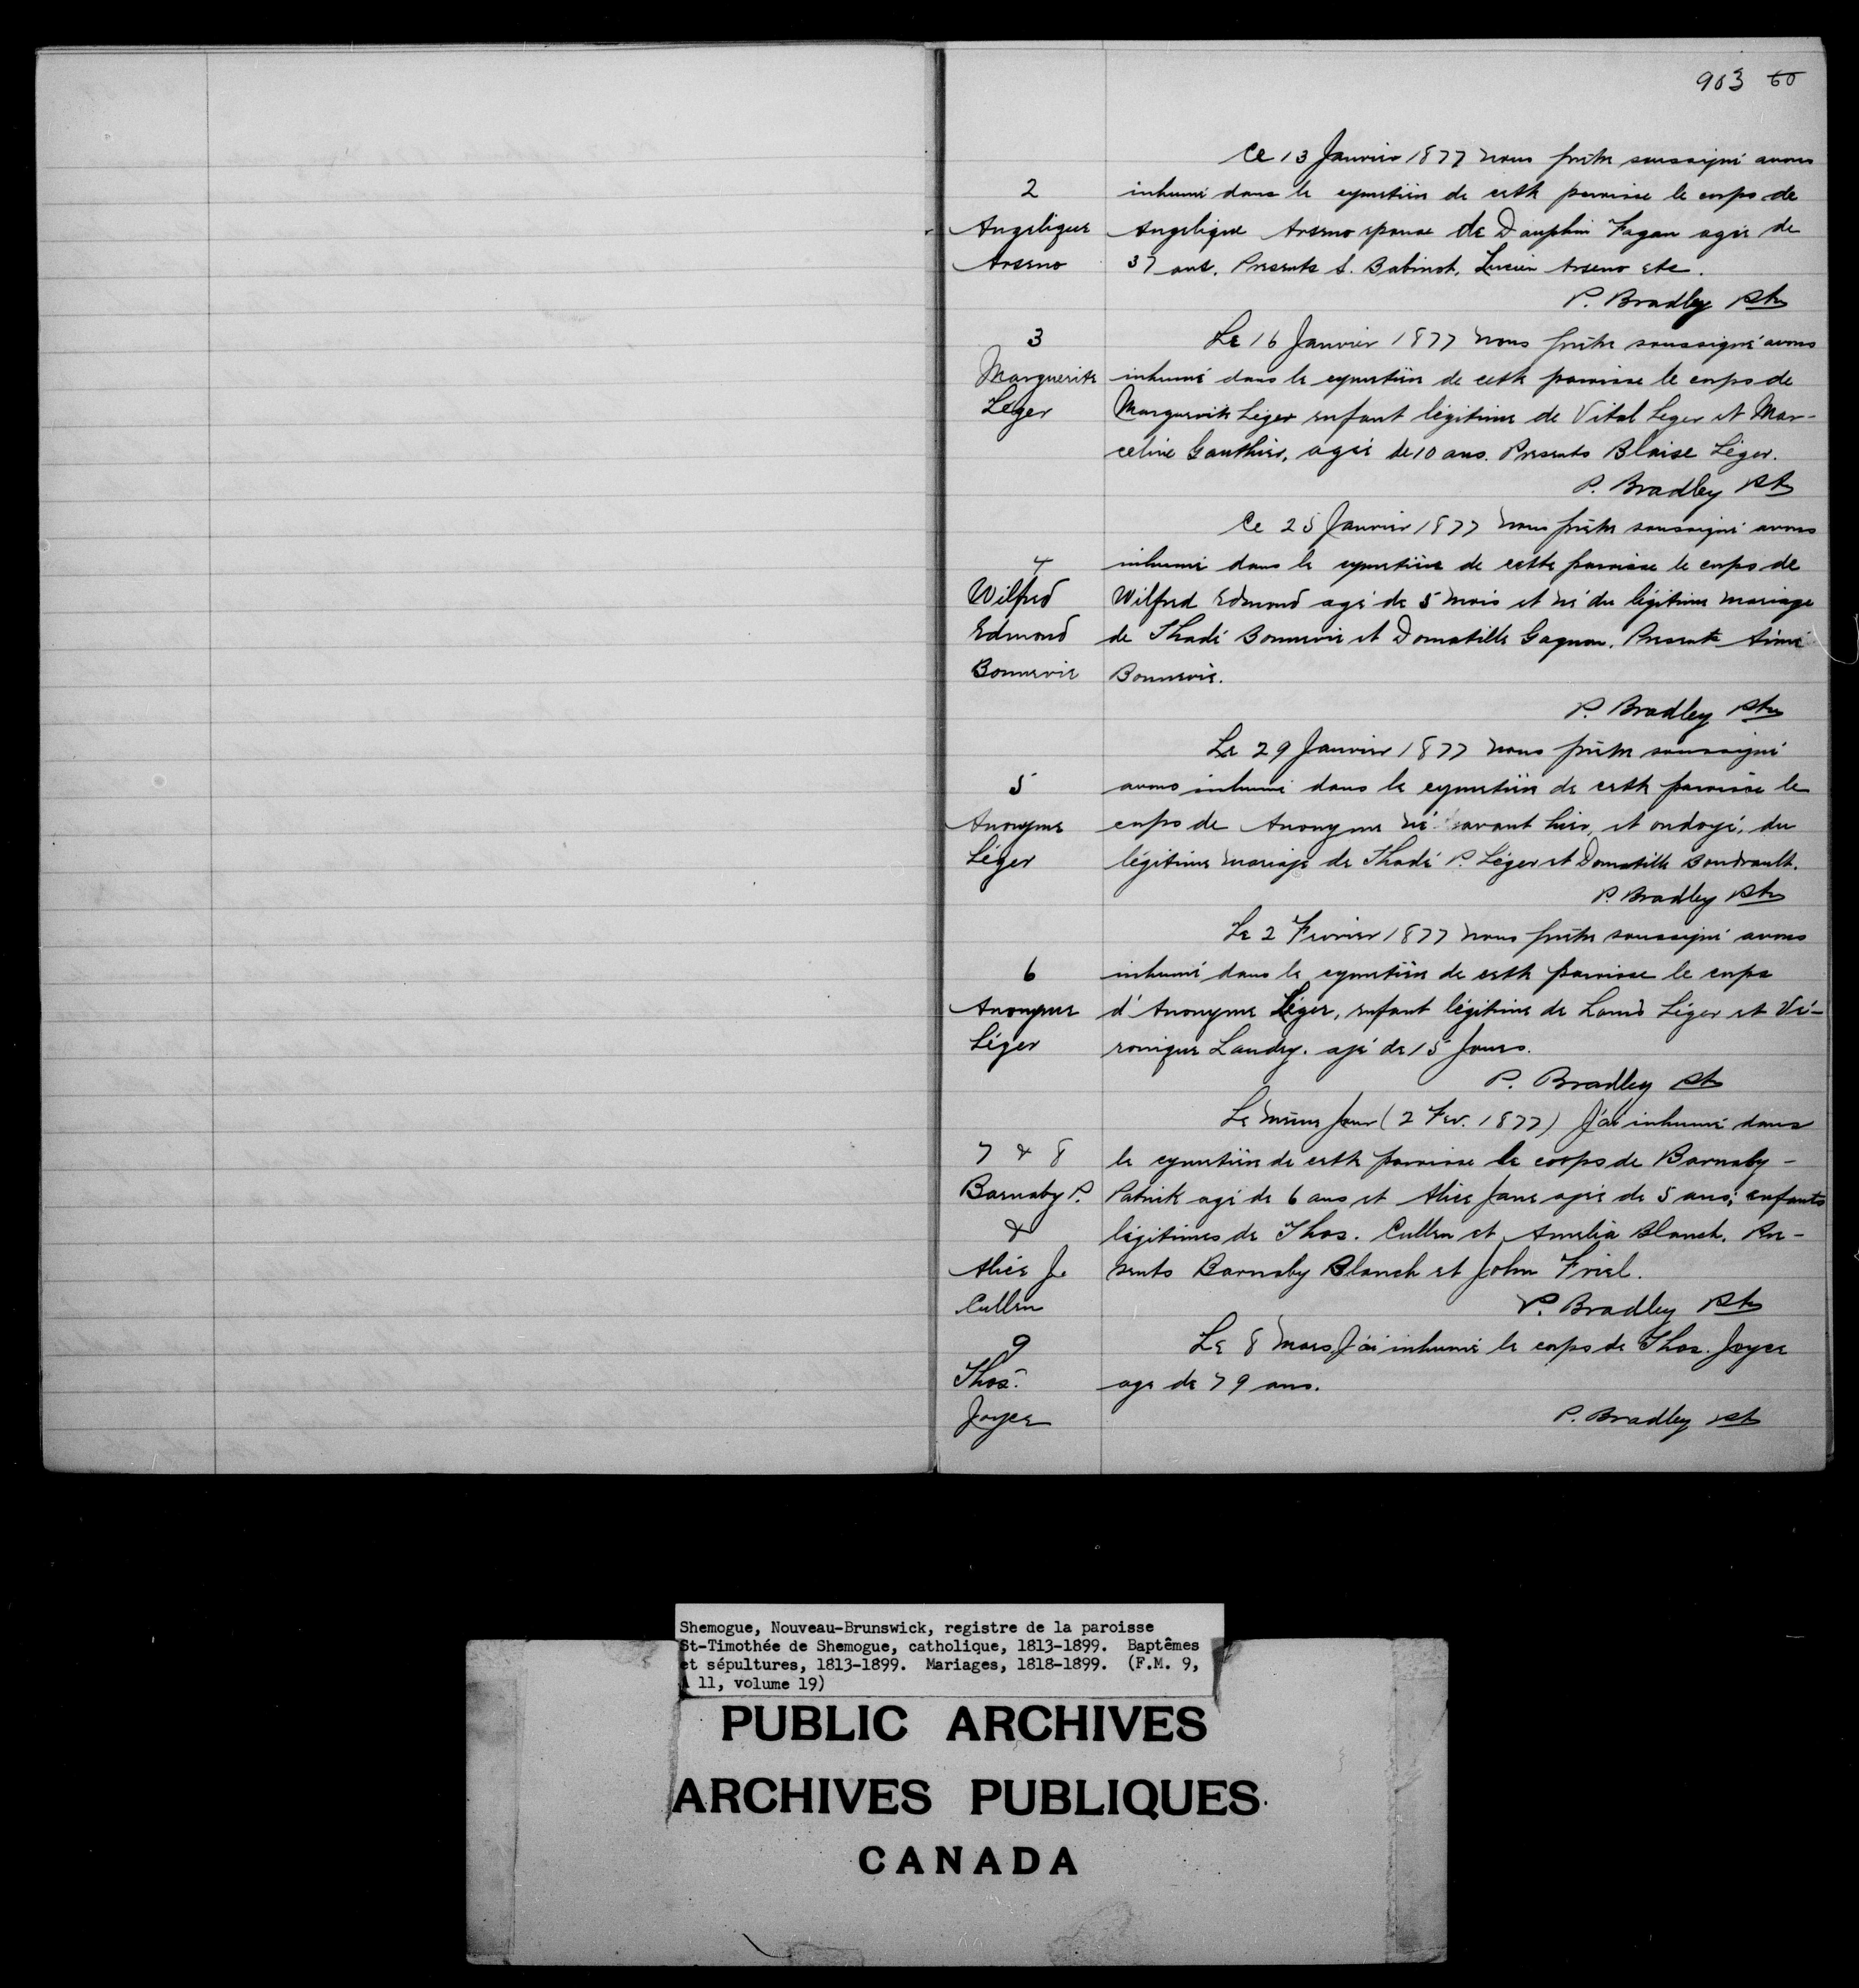 903 60
Ce 13 Janvier 1877 nous prêtre soussigné avons
2
inhumé dans le cymetière de cette paroisse le corps de
Angelique
Angelique Arseno epouse de Dauphin Fagan agée de
Arseno
37 ans. Presents S. Babinot, Lucien Arseno etc.
P. Bradley Ptr
3
Le 16 Janvier 1877 nous prêtre soussigné avons
Marguerite
inhumé dans le cymetière de cette paroisse le corps de
Léger
Marguerite Léger enfant légitime de Vital Leger et Mar-
celine Gauthier, agée de 10 ans. Presents Blaise Léger.
P. Bradley Ptr
Ce 25 Janvier 1877 nous prêtre soussigné avons
4
inhumé dans le cymetière de cette paroisse le corps de
Wilfred
Wilfred Edmond agé de 5 mois et né du légitime mariage
Edmond
de Thadé Bonnevie et Domatille Gagnon. Presents Aimé
Bonnevie
Bonnevie.
P. Bradley Ptr
Le 29 Janvier 1877 nous prêtre soussigné
5
avons inhumé dans le cymetière de cette paroisse le
Anonyme
corps de Anonyme né avant hier, et ondoyé, du
Léger
légitime mariage de Thadé P. Léger et Domatille Boudrault.
P. Bradley Ptr
Le 2 Fevrier 1877 nous prêtre soussigné avons
6
inhumé dans le cymetière de cette paroisse le corps
Anonyme
d'Anonyme Léger, enfant légitime de Laud Léger et Vé-
Léger
ronique Landry. agé de 15 Jours.
P. Bradley Ptr
Le même Jour (2 Fev. 1877) J'ai inhumé dans
7 & 8
le cymetière de cette paroisse le corps de Barnaby-
Barnaby P.
Patrick agé de 6 ans et Alice Jane agée de 5 ans; enfants
&
légitimes de Thos. Cullen et Amelia Blanch. Pre-
Alice J.
sents Barnaby Blanch et John Friel.
Cullen
P. Bradley Ptr
9
Le 8 Mars, J'ai inhumé le corps de Thos. Joyce
Thos.
age de 79 ans.
Joyce
P. Bradley Ptr
Shemogue, Nouveau-Brunswick, registre de la paroisse
St-Timothée de Shemogue, catholique, 1813-1899. Baptêmes
et sépultures, 1813-1899. Mariages, 1818-1899. (F.M. 9,
11, volume 19)
PUBLIC ARCHIVES
ARCHIVES PUBLIQUES
CANADA